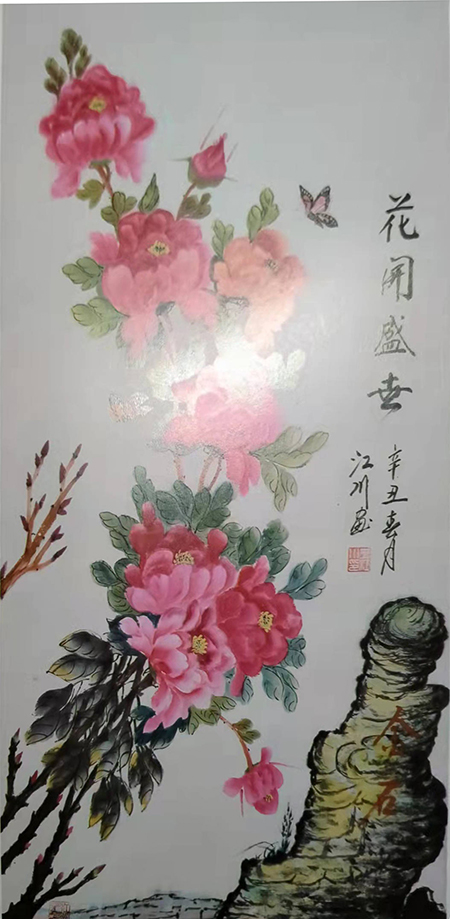 花开盛世
辛丑春月
江川画
金石